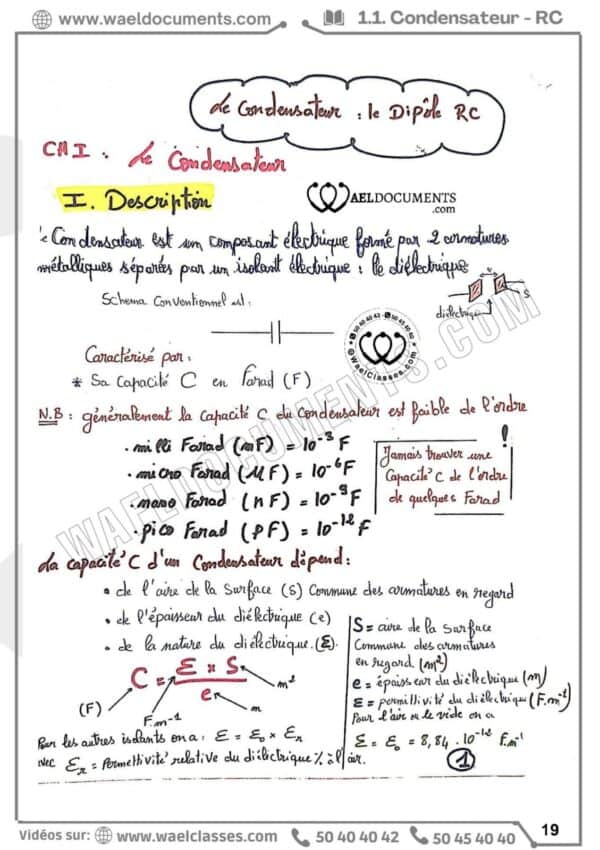 www.waeldocuments.com
1.1. Condensateur - RC
Le Condensateur : le Dipôle RC
CH I : Le Condensateur
I. Description
WAELDOCUMENTS
.com
Le Condensateur est un composant électrique formé par 2 armatures
métalliques séparées par un isolant électrique : le diélectrique
Schema Conventionnel est :
diélectrique
S
Caractérisé par :
* Sa Capacité C en Farad (F)
50 40 40 42 - 50 45 40 40
WaelClasses.com
N.B : généralement la Capacité C du Condensateur est faible de l'ordre
• milli Farad (mF) = 10⁻³ F
• micro Farad (μF) = 10⁻⁶ F
• nano Farad (nF) = 10⁻⁹ F
• pico Farad (pF) = 10⁻¹² F
!
Jamais trouver une
Capacité C de l'ordre
de quelques Farad
La capacité C d'un Condensateur dépend :
• de l'aire de la Surface (S) Commune des armatures en regard
• de l'épaisseur du diélectrique (e)
• de la nature du diélectrique. (ε)
C = ε × S / e
m²
m
(F)
F.m⁻¹
S = aire de la Surface
Commune des armatures
en regard (m²)
e = épaisseur du diélectrique (m)
ε = permillivité du diélectrique (F.m⁻¹)
Pour l'air ou le vide on a
ε = ε₀ = 8,84 . 10⁻¹² F.m⁻¹
Par les autres isolants on a : ε = ε₀ × εr
avec εr = Permettivité relative du diélectrique % à l'air.
1
WAELDOCUMENTS.COM
19
Vidéos sur: www.waelclasses.com 50 40 40 42 50 45 40 40